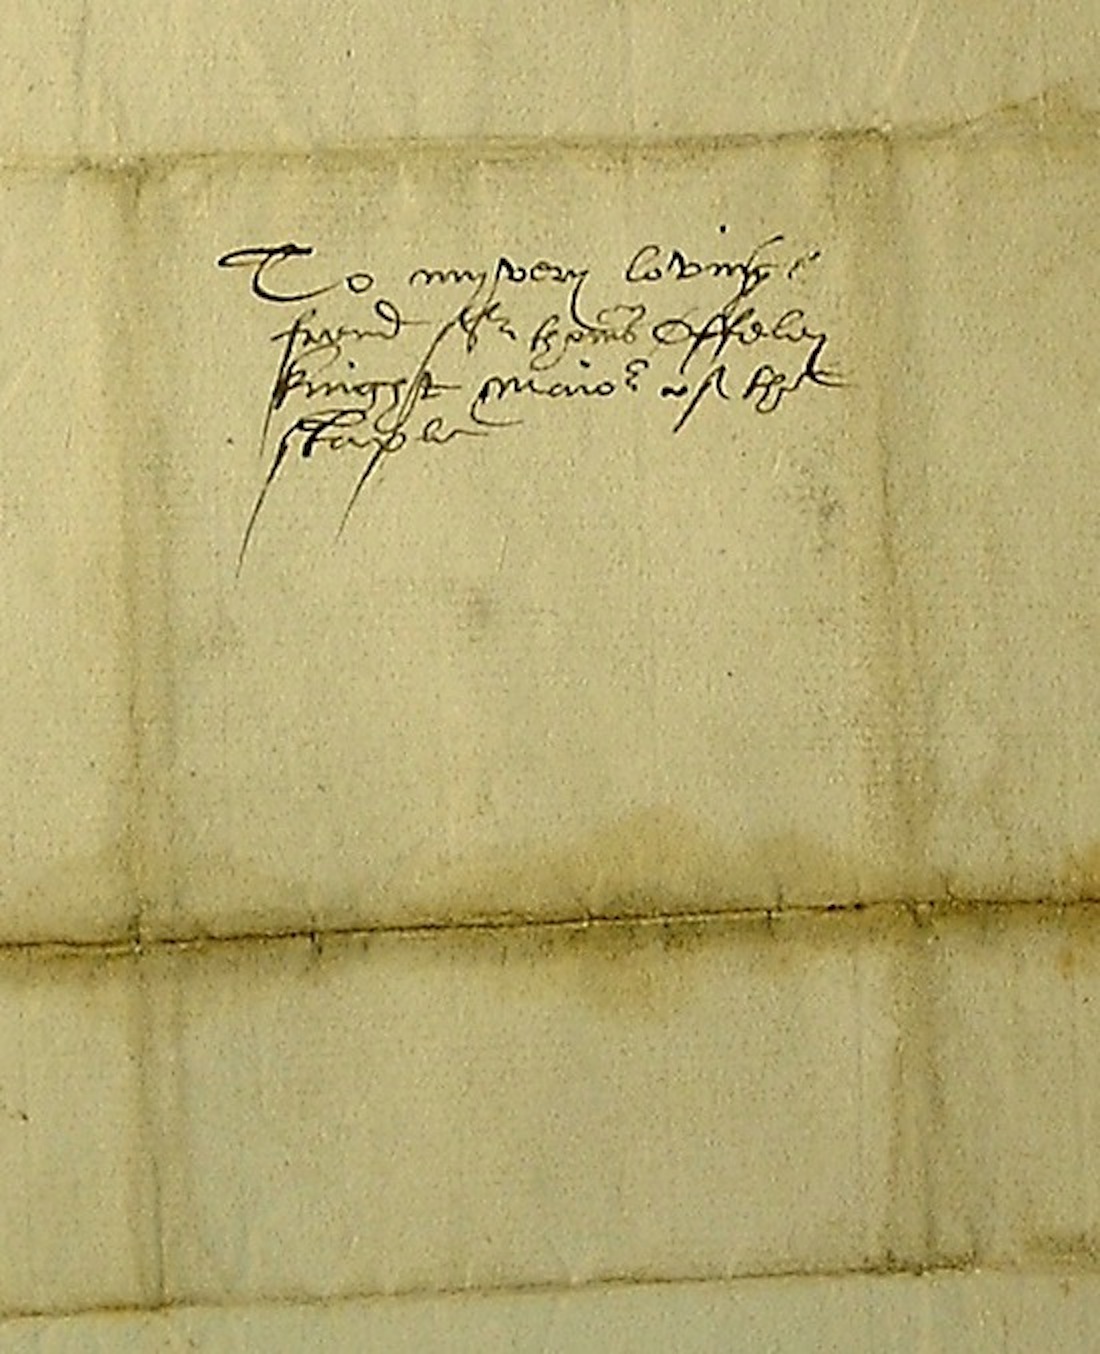 To my very lovinge
frend Sr thoms Offeley
knyght Maior of the
staple